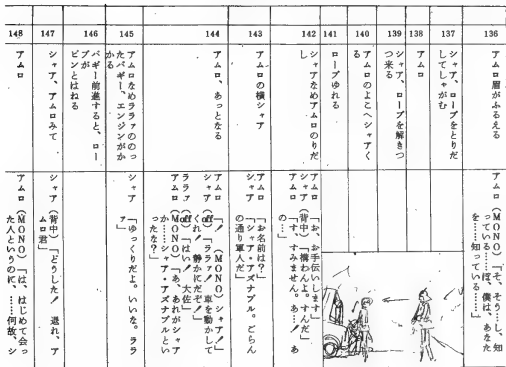 136
アムロ眉がふるえる
アムロ(MONO)「そ、そう…し、知
っている……ぼ、僕は、あなた
を……知っている……」
137
シャア、ロープをとりだ
してしゃがむ
138
アムロ
139
シャア、ロープを解きつ
つ来る
140
アムロのよこへシャアく
る
141
ロープゆれる
142
シャアなめアムロのりだ
し
アムロ「お、お手伝いします」
シャア(背中)「構わんよ。すんだ」
アムロ「す、すみません。あ…! あ
の…」
143
アムロの横シャア
アムロ「お名前は?」
シャア「シャア・アズナブル。ごらん
の通り軍人だ」
144
アムロ、あっとなる
アムロ「!(MONO)シャア!」
シャア(off)「ララァ! 車を動かして
くれ! 静かにだぞ!」
ララァ(off)「はい、大佐」
アムロ(MONO)「あ、あれがシャア
か……シャア・アズナブルとい
ったな?」
145
アムロなめララァののっ
たバギー、エンジンがか
かる
シャア「ゆっくりだよ。いいな。ララ
ァ」
146
バギー前進すると、ロー
プが
ピンとはねる
147
シャア、アムロみて
シャア(背中)「どうした! 退れ、ア
ムロ君」
148
アムロ
アムロ(MONO)「は、はじめて会っ
た人というのに、……何故、シ